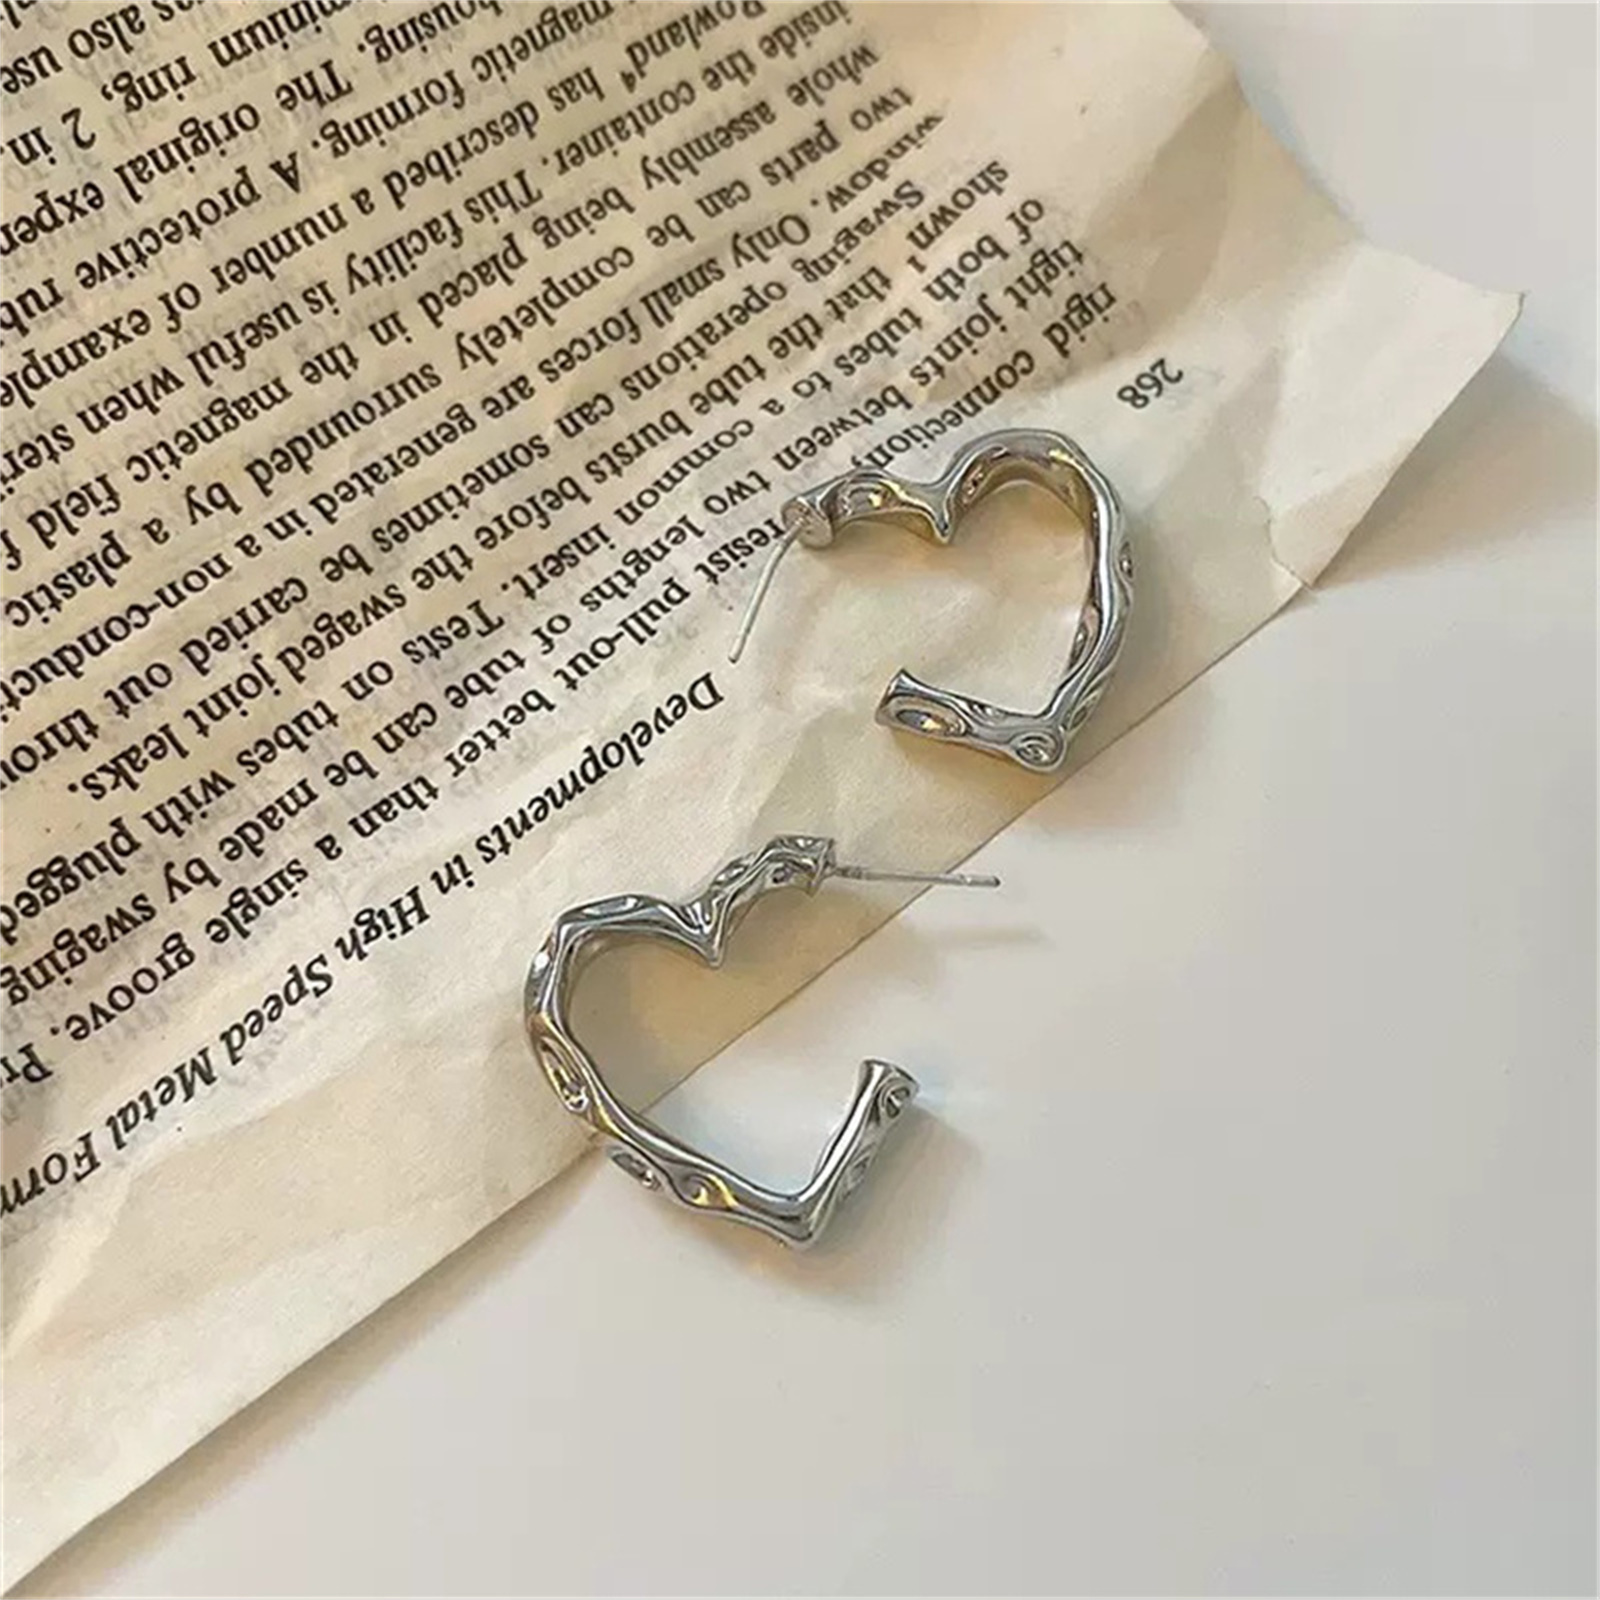 268
Developments in High Speed Metal Form
rigid connection, resist pull-out better than a single groove. Pr
tight joints between two lengths of tube can be made by swaging
of both tubes to a common insert. Tests on tubes with plugged
shown ¹ that the tube bursts before the swaged joint leaks.
Swaging operations can sometimes be carried out throu
window. Only small forces are generated in a non-conducti
two parts can be completely surrounded by a plastic
whole assembly being placed in the magnetic field f
inside the container. This facility is useful when steri
Rowland⁴ has described a number of example
magnetic forming. A protective rub
housing. The original exper
minium ring, 2 in.
as also use